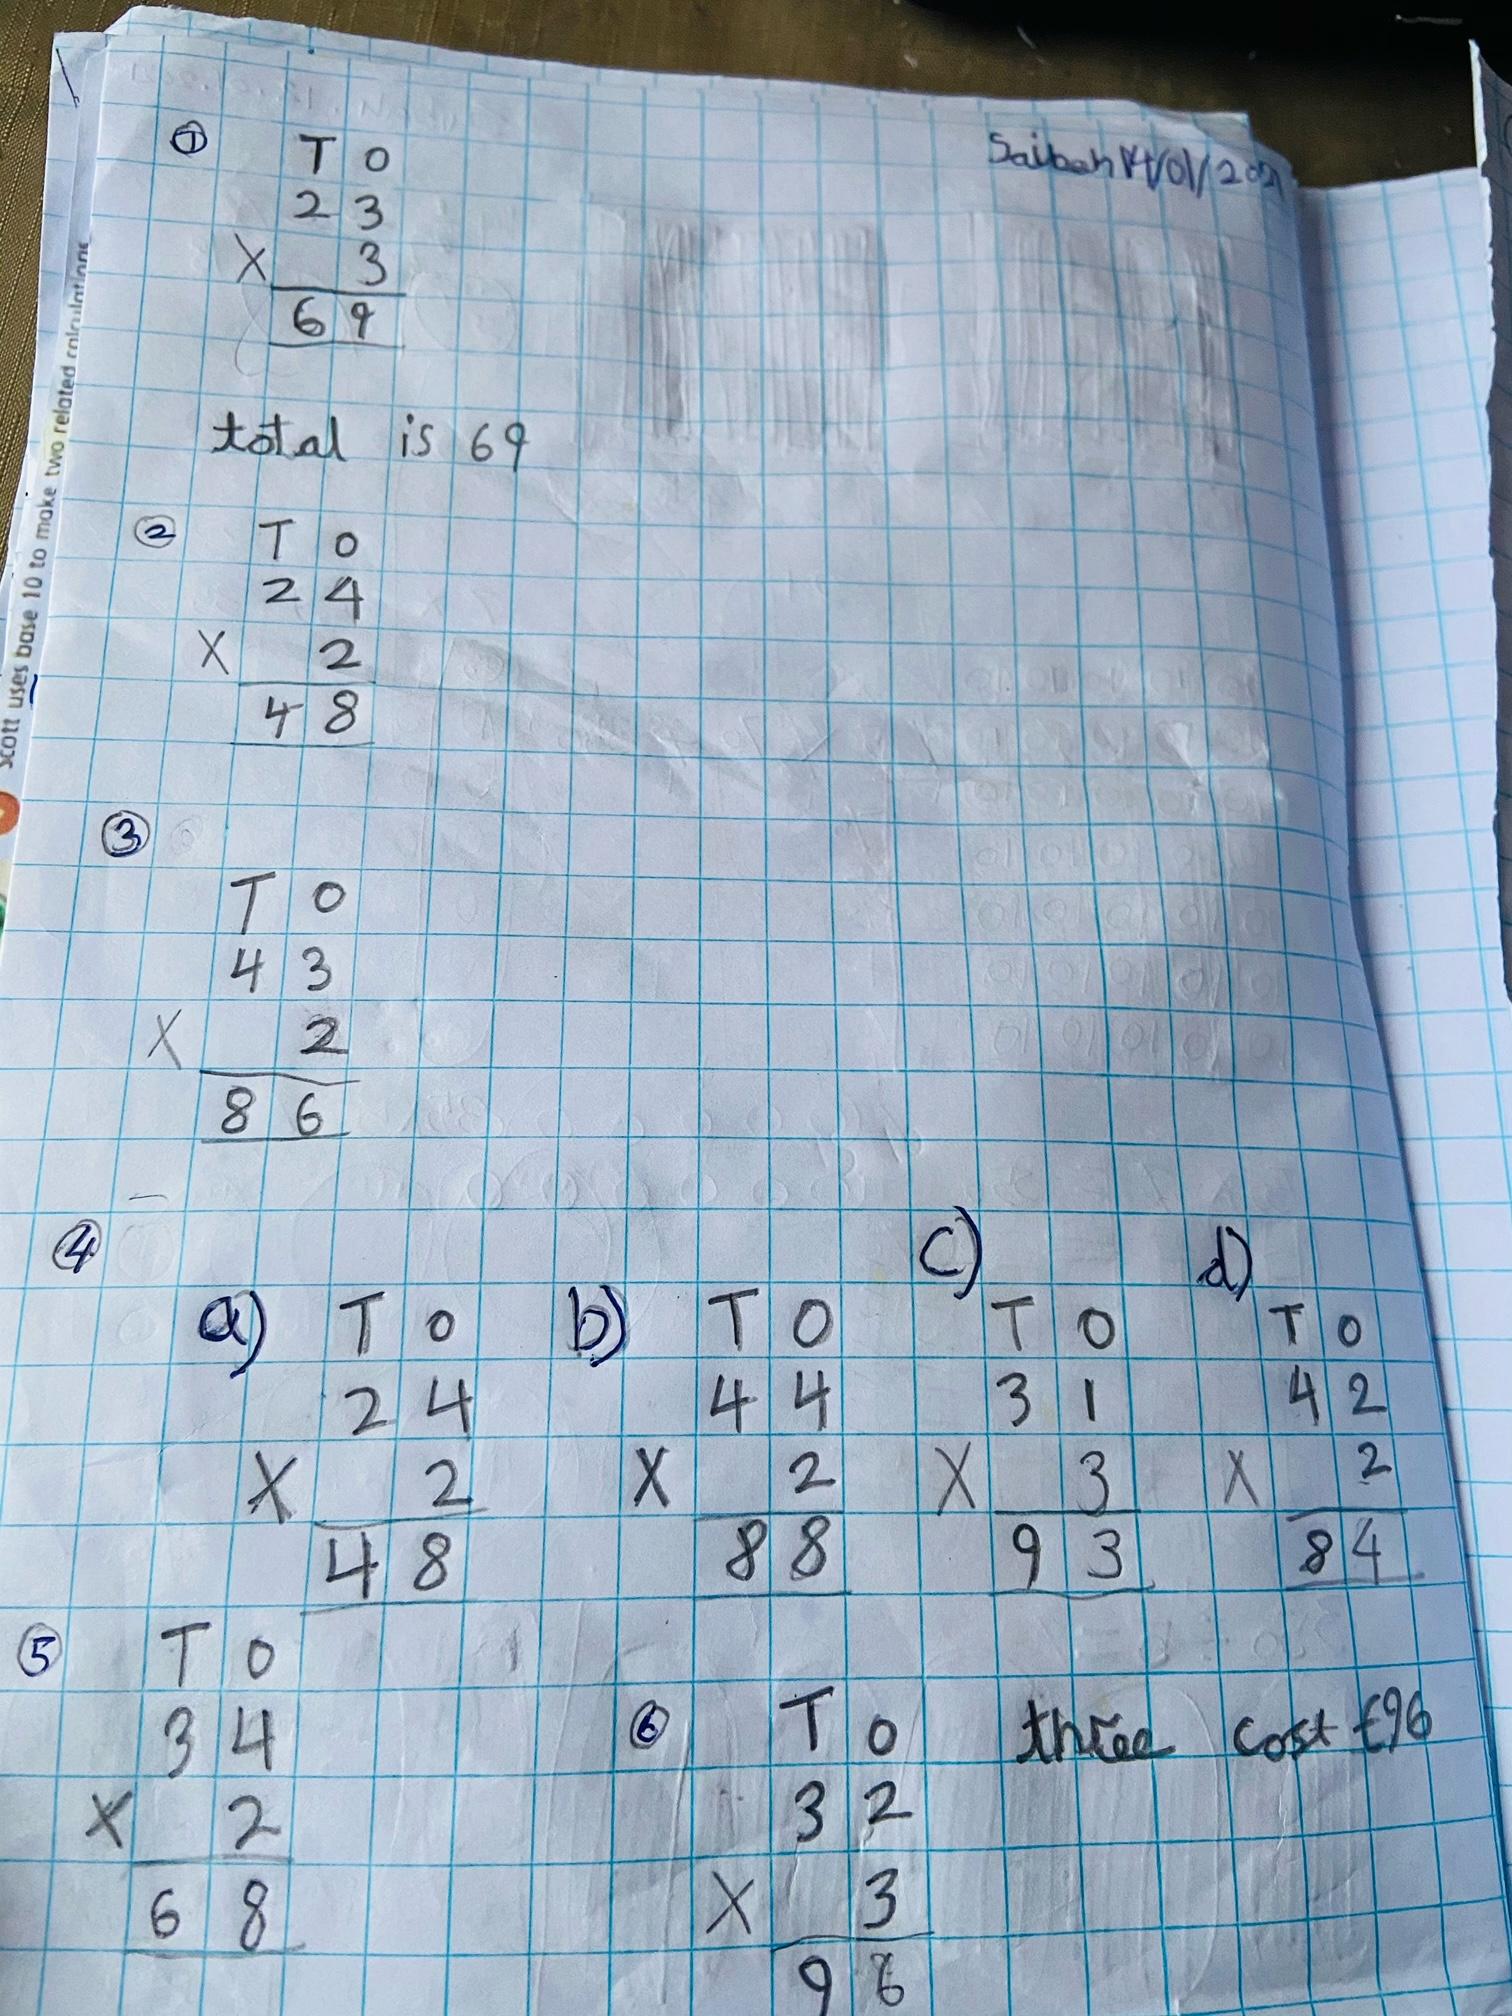 Saibah 14/01/2021
① T O
2 3
X 3
6 9
total is 69
② T O
2 4
X 2
4 8
③
T O
4 3
X 2
8 6
④
a) T O
2 4
X 2
4 8
b) T O
4 4
X 2
8 8
c)
T O
3 1
X 3
9 3
d)
T O
4 2
X 2
8 4
⑤ T O
3 4
X 2
6 8
⑥ T O
3 2
X 3
9 6
three cost £96
Scott uses base 10 to make two related calculations